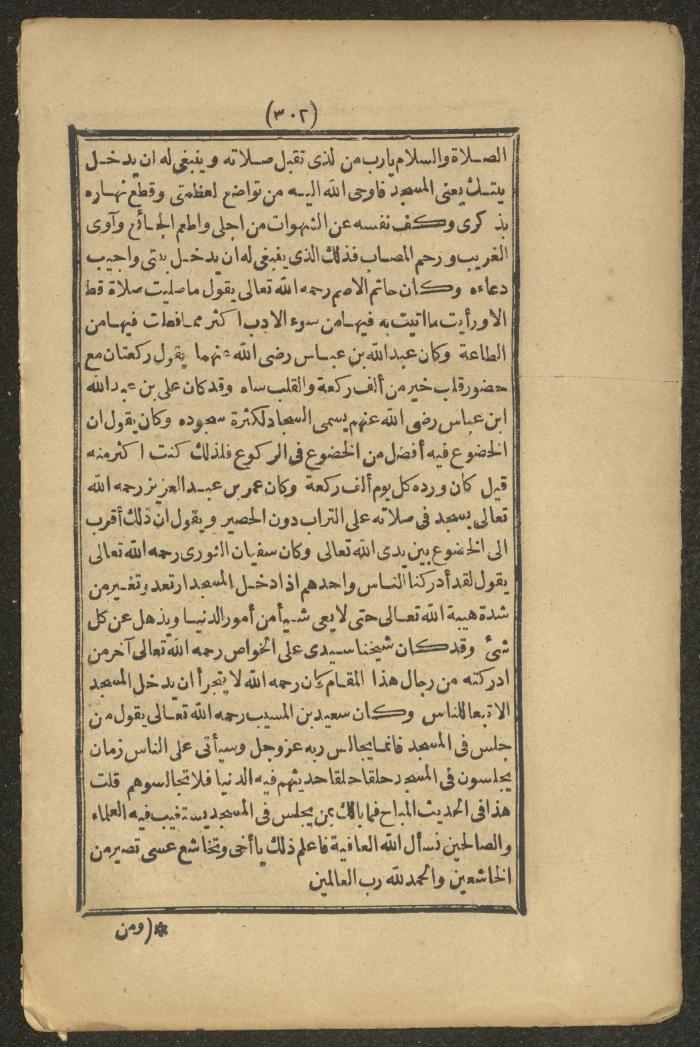 (٣٠٢)
الصلاة والسلام يارب من لذى تقبل صلاته وينبغى له ان يدخل
بيتك يعنى المسجد فاوحى الله اليه من تواضع لعظمتى وقطع نهاره
بذكرى وكف نفسه عن الشهوات من اجلى واطعم الجائع وآوى
الغريب ورحم المصاب فذلك الذى ينبغى له ان يدخل بيتى واجيب
دعاءه وكان حاتم الاصم رحمه الله تعالى يقول ماصليت صلاة قط
الا ورأيت ما اتيت به فيها من سوء الادب اكثر مما فعلت فيها من
الطاعة وكان عبد الله بن عباس رضى الله عنهما يقول ركعتان مع
حضور قلب خير من ألف ركعة والقلب ساه وقد كان على بن عبد الله
ابن عباس رضى الله عنهم يسمى السجاد لكثرة سجوده وكان يقول ان
الخضوع فيه أفضل من الخضوع فى الركوع فلذلك كنت اكثر منه
قيل كان ورده كل يوم ألف ركعة وكان عمر بن عبد العزيز رحمه الله
تعالى يسجد فى صلاته على التراب دون الحصير ويقول ان ذلك أقرب
الى الخضوع بين يدى الله تعالى وكان سفيان الثورى رحمه الله تعالى
يقول لقد أدركنا الناس واحدهم اذا دخل المسجد ارتعد وتغير من
شدة هيبة الله تعالى حتى لا يعى شيأ من أمور الدنيا ويذهل عن كل
شئ وقد كان شيخنا سيدى على الخواص رحمه الله تعالى آخر من
ادركته من رجال هذا المقام كان رحمه الله لا يتجرأ ان يدخل المسجد
الا تبعا للناس وكان سعيد بن المسيب رحمه الله تعالى يقول من
جلس فى المسجد فانما يجالس ربه عز وجل وسيأتى على الناس زمان
يجلسون فى المسجد حلقا حلقا حديثهم فيه الدنيا فلا تجالسوهم قلت
هذا فى الحديث المباح فما بالك بمن يجلس فى المسجد يستغيب فيه العلماء
والصالحين نسأل الله العافية فاعلم ذلك يا أخى وتخاشع عسى تصير من
الخاشعين والحمد لله رب العالمين
*(ومن